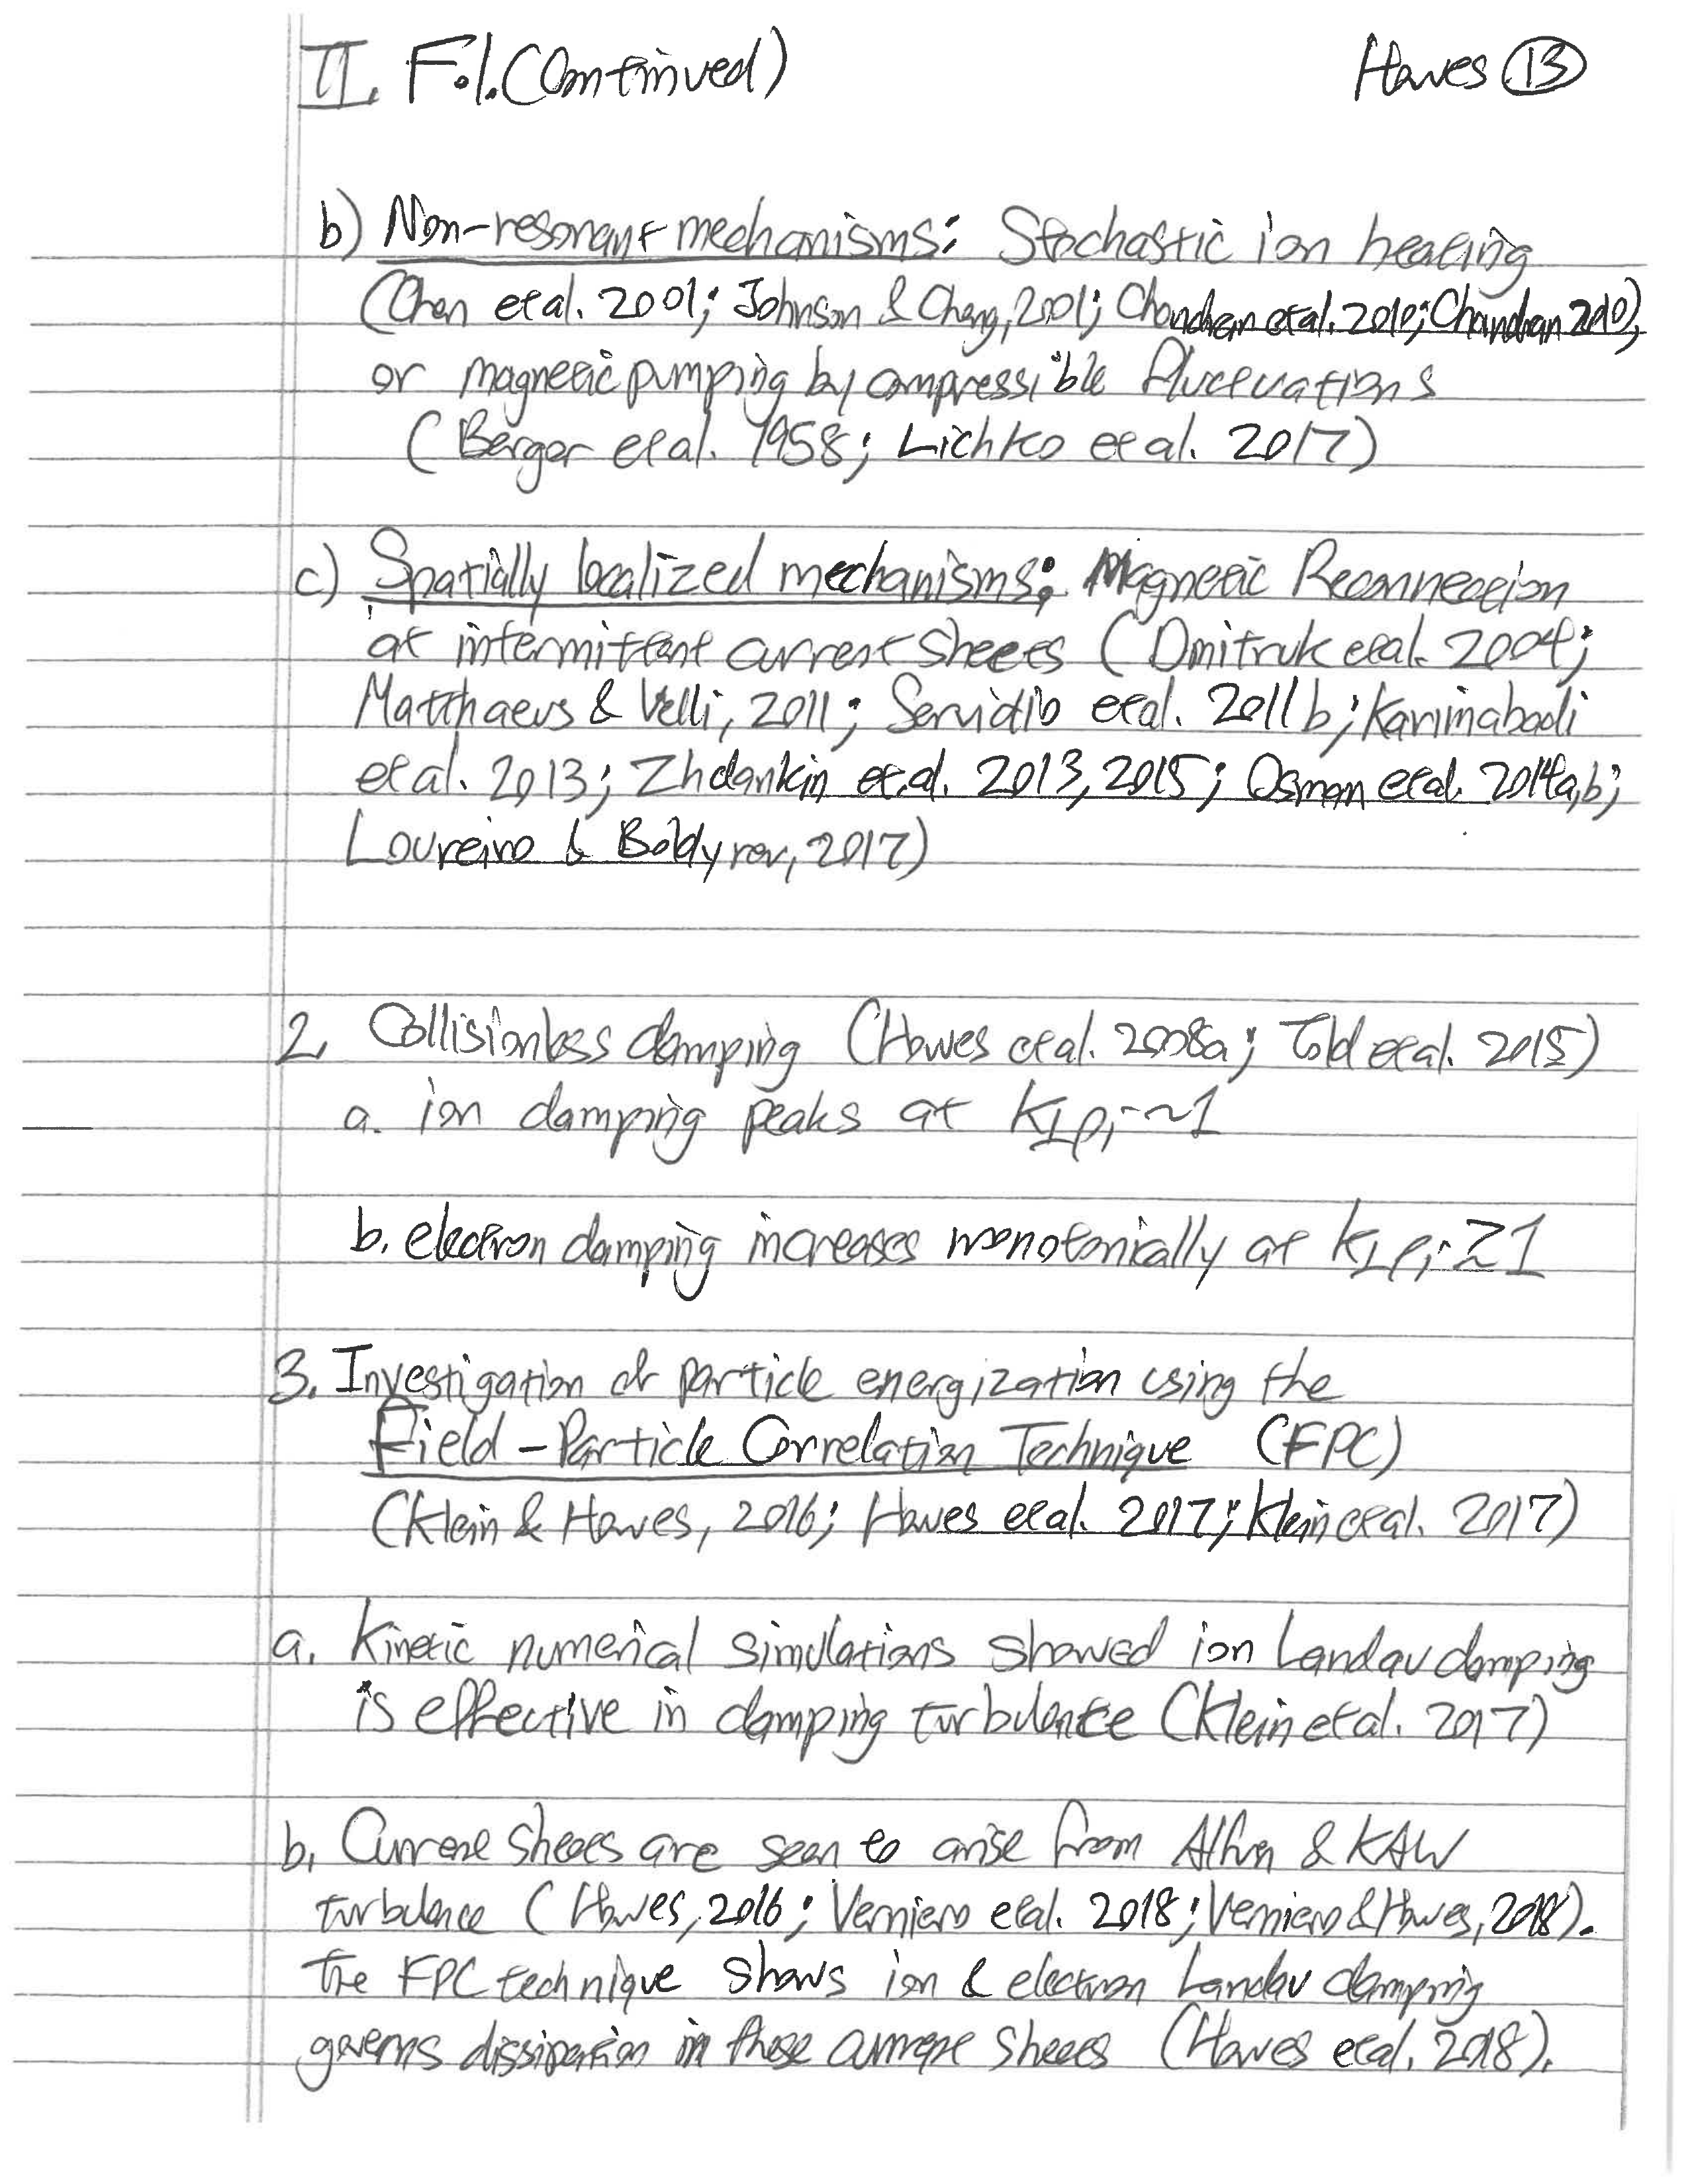 II. F.1. (Continued)
Howes 13
b) Non-resonant mechanisms: Stochastic ion heating
(Chen et al. 2001; Johnson & Cheng, 2001; Chandran et al. 2010; Chandran 2010),
or magnetic pumping by compressible fluctuations
(Berger et al. 1958; Lichko et al. 2017)
c) Spatially localized mechanisms: Magnetic Reconnection
at intermittent current sheets (Dmitruk et al. 2004;
Matthaeus & Velli, 2011; Servidio et al. 2011b; Karimabadi
et al. 2013; Zhdankin et al. 2013, 2015; Osman et al. 2014a,b;
Loureiro & Boldyrev, 2017)
2. Collisionless damping (Howes et al. 2008a; Told et al. 2015)
a. ion damping peaks at k⊥ρi ~ 1
b. electron damping increases monotonically at k⊥ρi ≳ 1
3. Investigation of particle energization using the
Field-Particle Correlation Technique (FPC)
(Klein & Howes, 2016; Howes et al. 2017; Klein et al. 2017)
a. Kinetic numerical simulations showed ion Landau damping
is effective in damping turbulence (Klein et al. 2017)
b. Current sheets are seen to arise from Alfven & KAW
turbulence (Howes, 2016; Verniero et al. 2018; Verniero & Howes, 2018).
The FPC technique shows ion & electron Landau damping
governs dissipation in these current sheets (Howes et al. 2018).